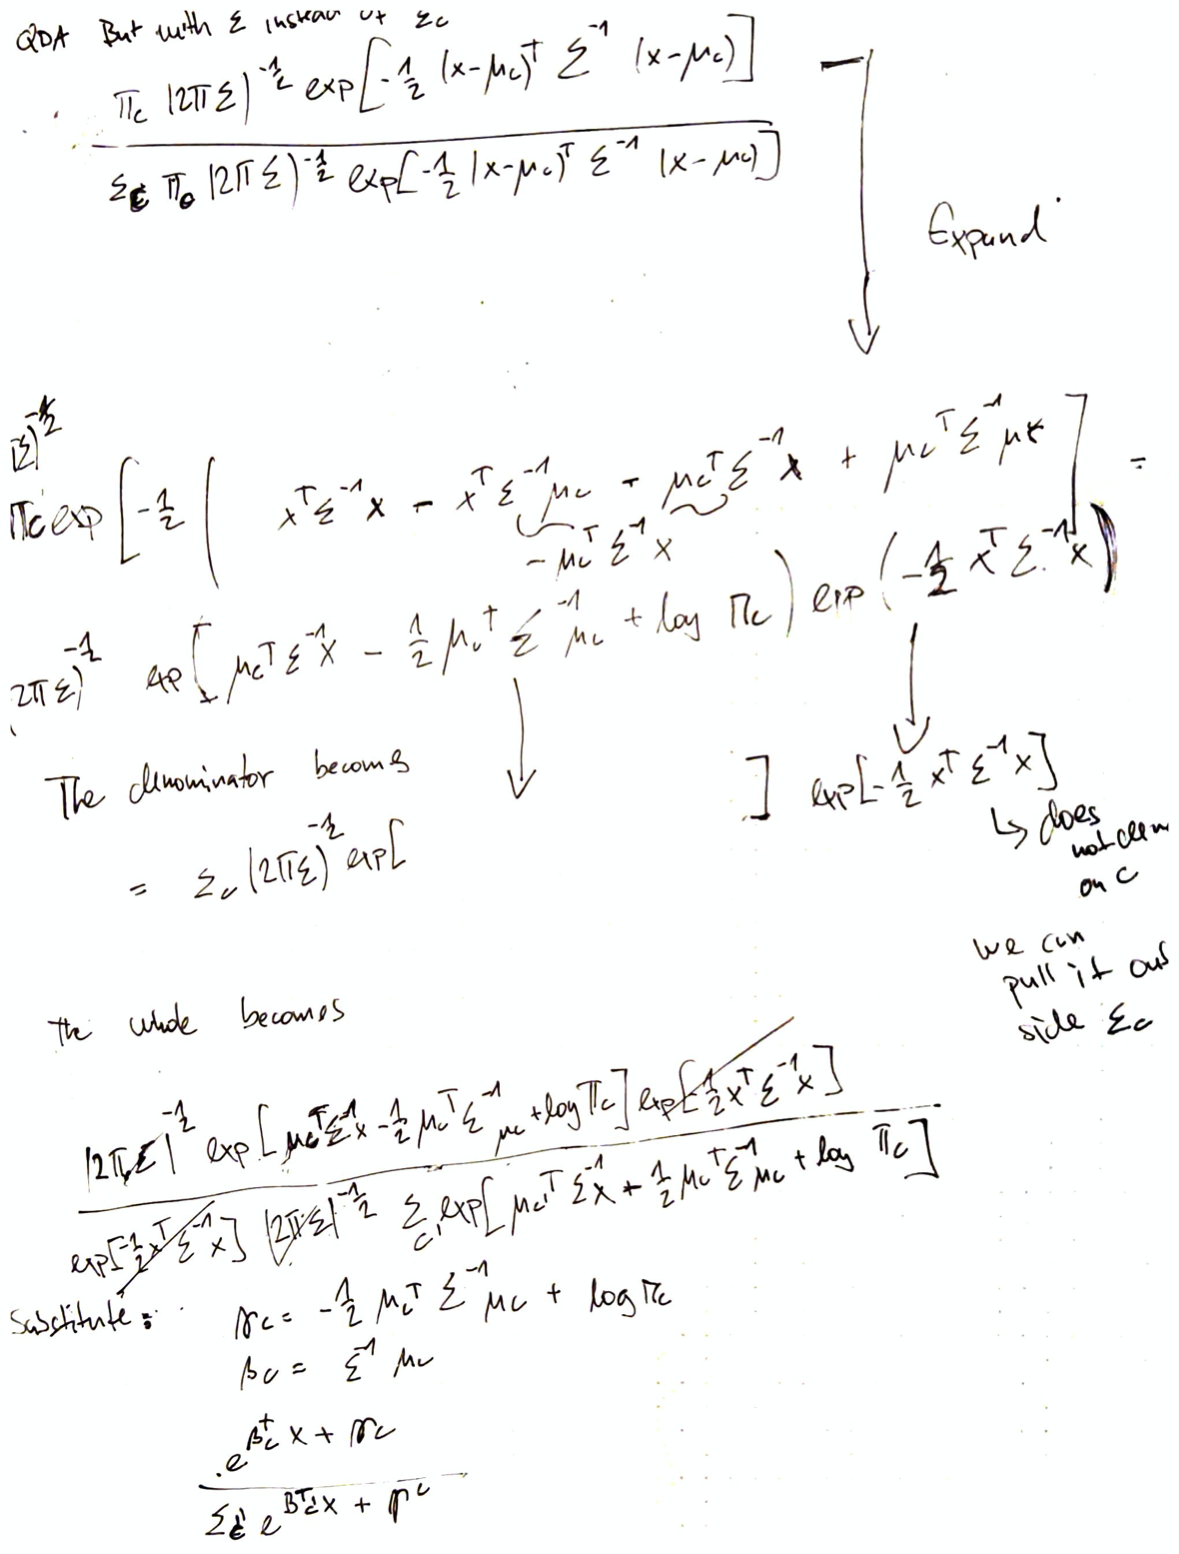 QDA But with Σ instead of Σc
πc |2πΣ|^-1/2 exp[-1/2 (x-μc)^T Σ^-1 (x-μc)]
Σc πc |2πΣ|^-1/2 exp[-1/2 (x-μc)^T Σ^-1 (x-μc)]
Expand
|Σ|^-1/2
πc exp[-1/2( x^T Σ^-1 x - x^T Σ^-1 μc - μc^T Σ^-1 x + μc^T Σ^-1 μc ] =
- μc^T Σ^-1 x
2πΣ)^-1/2 exp[ μc^T Σ^-1 x - 1/2 μc^T Σ^-1 μc + log πc ) exp(-1/2 x^T Σ^-1 x)
The denominator becomes
= Σc (2πΣ)^-1/2 exp[ ] exp[-1/2 x^T Σ^-1 x]
↳ does
not
on c
we can
pull it out
side Σc
the whole becomes
|2πΣ|^-1/2 exp[μc^T Σ^-1 x - 1/2 μc^T Σ^-1 μc + log πc] exp[-1/2 x^T Σ^-1 x]
exp[-1/2 x^T Σ^-1 x] |2πΣ|^-1/2 Σc' exp[μc'^T Σ^-1 x + 1/2 μc^T Σ^-1 μc + log πc]
Substitute: γc = -1/2 μc^T Σ^-1 μc + log πc
βc = Σ^-1 μc
e^βc^T x + γc
Σc' e^βc'^T x + γc